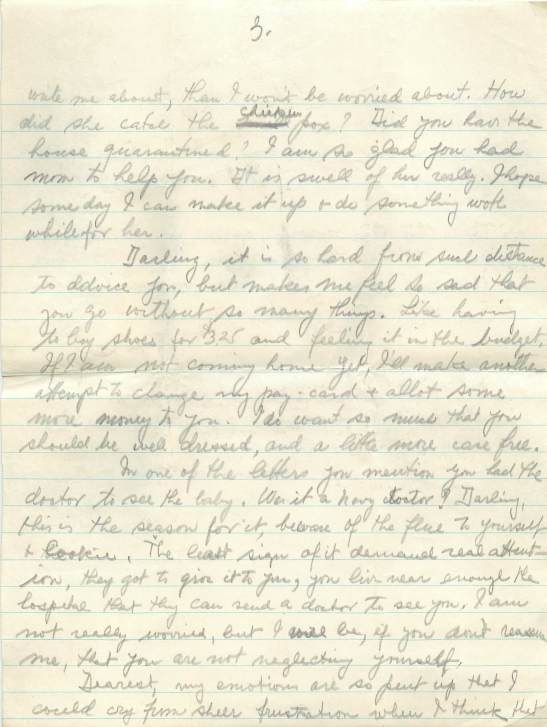 3.
write me about, than I won't be worried about. How
did she catch the chicken pox? Did you have the
house quarantined? I am so glad you had
mom to help you. It is swell of her really. I hope
some day I can make it up & do something woth
while for her.
Darling, it is so hard from such distance
to advice you, but makes me feel so sad that
you go without so many things. Like having
to buy shoes for $325 and feeling it in the budget.
If I am not coming home yet, I'll make another
attempt to change my pay-card & allot some
more money to you. I do want so much that you
should be well dressed, and a little more care free.
In one of the letters you mention you had the
doctor to see the baby. Was it a Navy doctor? Darling,
this is the season for it, beware of the flue to yourself
& Cookie. The least sign of it demand real attent-
ion, they got to give it to you, you live near enough the
hospital that they can send a doctor to see you. I am
not really worried, but I will be, if you don't reassure
me, that you are not neglecting yourself.
Dearest, my emotions are so pent up that I
could cry from sheer frustration when I think that